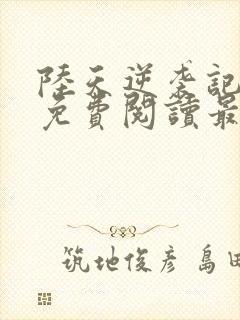 陸天逆袭記
免費閱讀最
筑地俊彦 島田